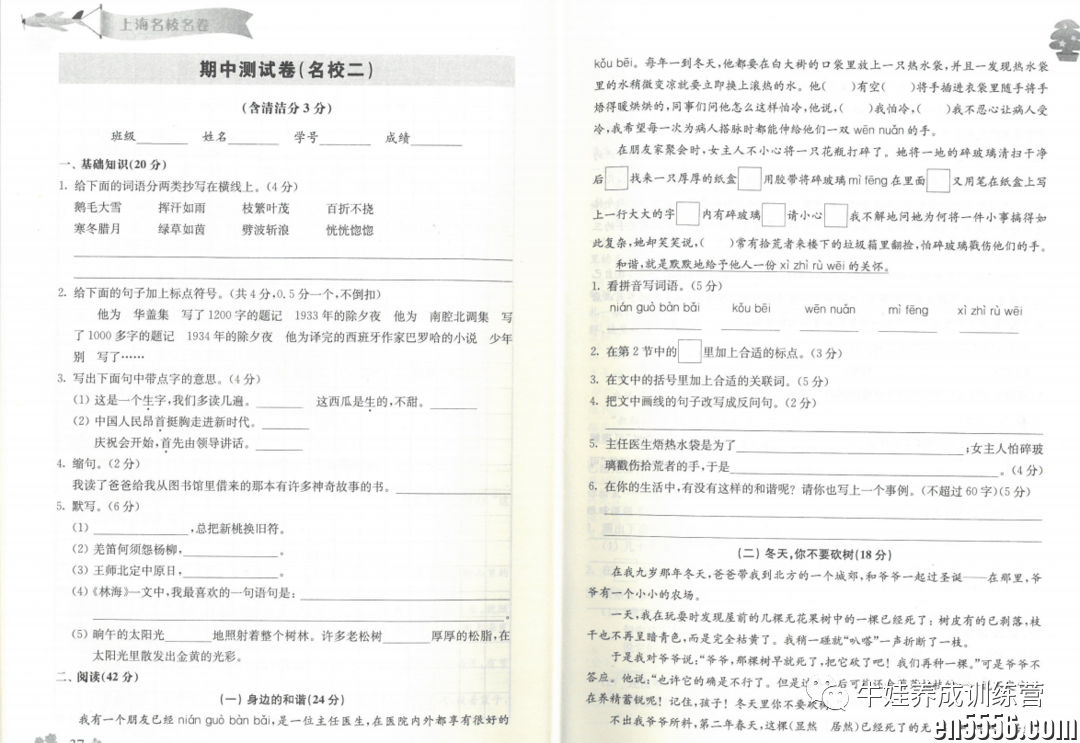 上海名校名卷
期中测试卷(名校二)
(含清洁分3分)
班级 姓名 学号 成绩
一、基础知识(20分)
1. 给下面的词语分两类抄写在横线上。(4分)
鹅毛大雪 挥汗如雨 枝繁叶茂 百折不挠
寒冬腊月 绿草如茵 劈波斩浪 恍恍惚惚
2. 给下面的句子加上标点符号。(共4分,0.5分一个,不倒扣)
他为 华盖集 写了1200字的题记 1933年的除夕夜 他为 南腔北调集 写
了1000多字的题记 1934年的除夕夜 他为译完的西班牙作家巴罗哈的小说 少年
别 写了……
3. 写出下面句中带点字的意思。(4分)
(1) 这是一个生字,我们多读几遍。 这西瓜是生的,不甜。
(2) 中国人民昂首挺胸走进新时代。
庆祝会开始,首先由领导讲话。
4. 缩句。(2分)
我读了爸爸给我从图书馆里借来的那本有许多神奇故事的书。
5. 默写。(6分)
(1) ,总把新桃换旧符。
(2) 羌笛何须怨杨柳, 。
(3) 王师北定中原日, 。
(4)《林海》一文中,我最喜欢的一句语句是:
。
(5) 晌午的太阳光 地照射着整个树林。许多老松树 厚厚的松脂,在
太阳光里散发出金黄的光彩。
二、阅读(42分)
(一) 身边的和谐(24分)
我有一个朋友已经 nián guò bàn bǎi,是一位主任医生,在医院内外都享有很好的
37
kǒu bēi。每年一到冬天,他都要在白大褂的口袋里放上一只热水袋,并且一发现热水袋
里的水稍微变凉就要立即换上滚热的水。他( )有空( )将手插进衣袋里随手将手
焐得暖烘烘的,同事们问他怎么这样怕冷,他说,( )我怕冷,( )我不忍心让病人受
冷,我希望每一次为病人搭脉时都能伸给他们一双 wēn nuǎn 的手。
在朋友家聚会时,女主人不小心将一只花瓶打碎了。她将一地的碎玻璃清扫干净
后□找来一只厚厚的纸盒□用胶带将碎玻璃 mì fēng 在里面□又用笔在纸盒上写
上一行大大的字□内有碎玻璃□请小心□我不解地问她为何将一件小事搞得如
此复杂,她却笑笑说,( )常有拾荒者来楼下的垃圾箱里翻捡,怕碎玻璃戳伤他们的手。
和谐,就是默默地给予他人一份 xì zhì rù wēi 的关怀。
1. 看拼音写词语。(5分)
nián guò bàn bǎi kǒu bēi wēn nuǎn mì fēng xì zhì rù wēi
2. 在第2节中的□里加上合适的标点。(3分)
3. 在文中的括号里加上合适的关联词。(5分)
4. 把文中画线的句子改写成反问句。(2分)
5. 主任医生焐热水袋是为了 ;女主人怕碎玻
璃戳伤拾荒者的手,于是 。(4分)
6. 在你的生活中,有没有这样的和谐呢?请你也写上一个事例。(不超过60字)(5分)
(二) 冬天,你不要砍树(18分)
在我九岁那年冬天,爸爸带我到北方的一个城郊,和爷爷一起过圣诞——在那里,爷
爷有一个小小的农场。
一天,我在玩耍时发现屋前的几棵无花果树中的一棵已经死了:树皮有的已剥落,枝
干也不再呈暗青色,而是完全枯黄了。我稍一碰就“叭嗒”一声折断了一枝。
于是我对爷爷说:“爷爷,那棵树早就死了,把它砍了吧!我们再种一棵。”可是爷爷不
答应。他说:“也许它的确是不行了。但是
在养精蓄锐呢!记住,孩子!冬天里你不要砍树
不出我爷爷所料,第二年春天,这棵(显然 居然)已经死了的无
牛娃养成训练营
en5556.com